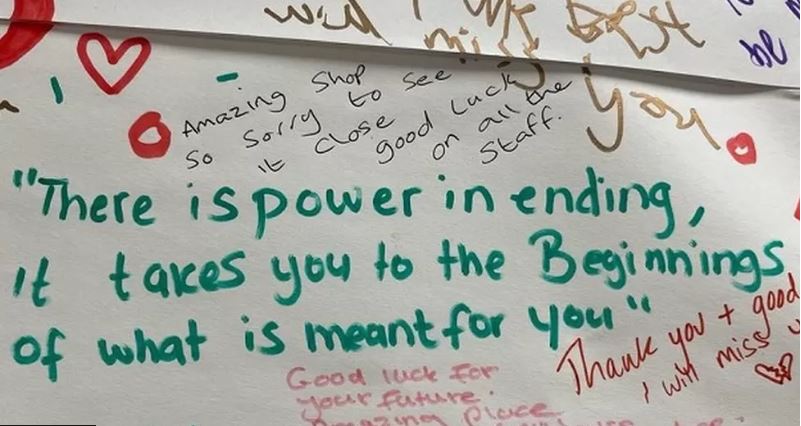 will
best
miss
you
be
Amazing shop
so sorry to see
it close good luck
on all the
staff.
"There is power in ending,
it takes you to the Beginnings
of what is meant for you"
Thank you + good
i will miss
Good luck for
your future.
Amazing place